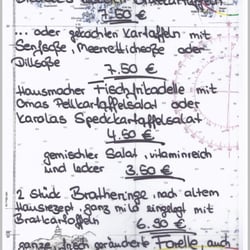 Bratkartoffeln
7.50 €
... oder gekochten Kartoffeln mit
Senfsoße, Meerrettichsoße oder
Dillsoße
7.50 €
Hausmacher Fischfrikadelle mit
Omas Pellkartoffelsalat oder
Karolas Speckkartoffelsalat
4.50 €
gemischter Salat, vitaminreich
und lecker 3.50 €
2 Stück Bratheringe nach altem
Hausrezept, ganz mild eingelegt mit
Bratkartoffeln
6.90 €
ganze, frisch geräucherte Forelle, auch